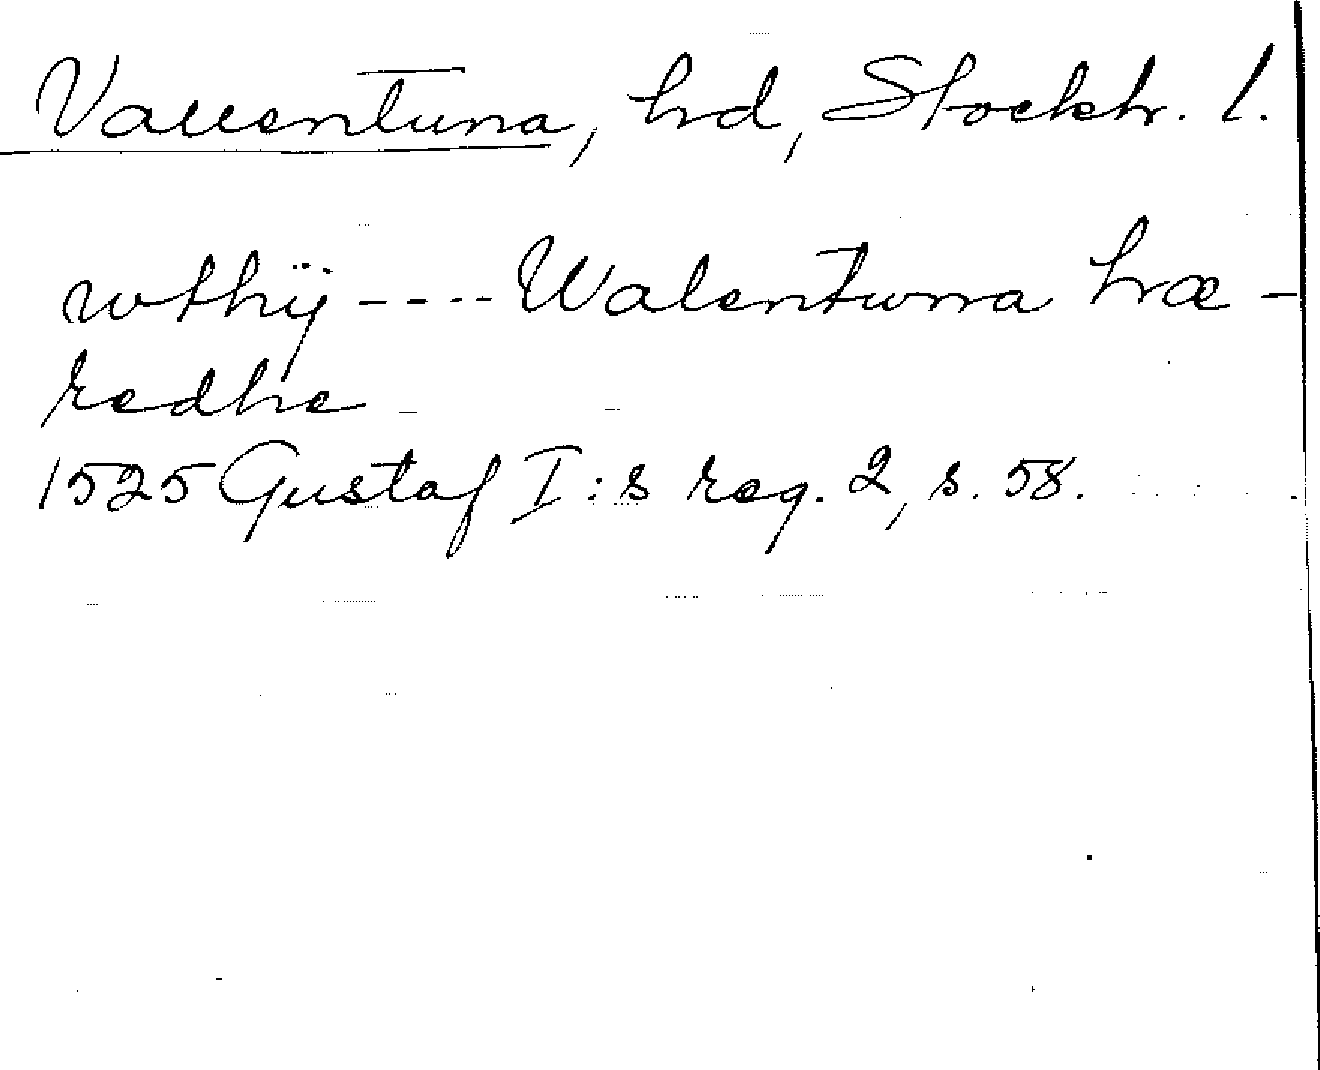 Vallentuna, hd, Stockh. l.
wthij ---- Walentwna hæ-
redhe
1525 Gustaf I:s reg. 2, s. 58.